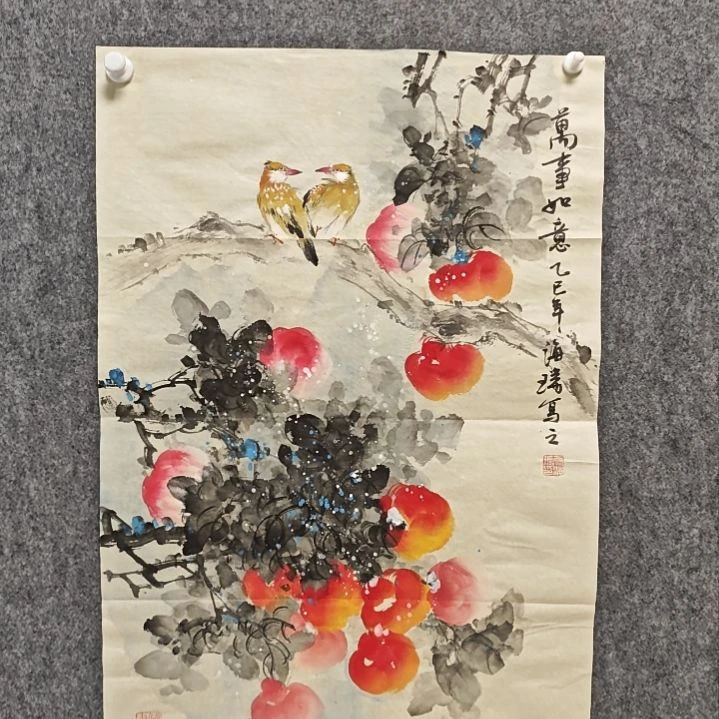 萬事如意 乙巳年 海瑞寫之